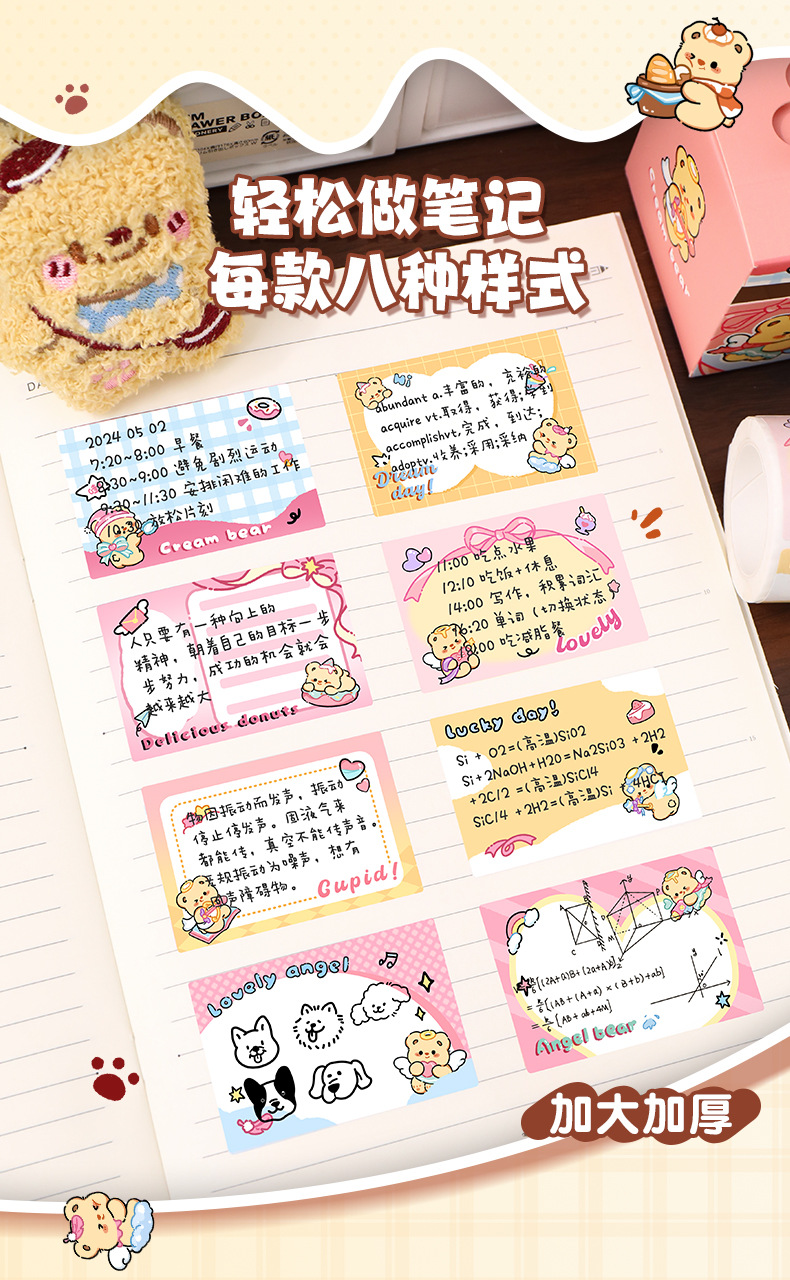 AWER BO
轻松做笔记
每款八种样式
2024 05 02
7:20~8:00 早餐
8:30~9:00 避免剧烈运动
9:30~11:30 安排困难的工作
放松片刻
Cream bear
Hi
abundant a.丰富的，充裕的
acquire vt.取得，获得;学到
accomplishvt.完成，到达;
adoptv.收养;采用;采纳
Dream
day!
人只要有一种向上的
精神，朝着自己的目标一步
步努力，成功的机会就会
越来越大
Delicious donuts
11:00 吃点水果
12:10 吃饭+休息
14:00 写作，积累词汇
16:20 单词（切换状态）
18:00 吃减脂餐
lovely
物因振动而发声，振动
停止停发声。固液气来
都能传，真空不能传声音。
规振动为噪声，想有
声障碍物。
Cupid!
Lucky day!
Si + O2=(高温)SiO2
Si+2NaOH+H2O=Na2SiO3 +2H2
+2C/2 =(高温)SiCl4
SiCl4 +2H2=(高温)Si +4HCl
Lovely angel
=h/6[(2A+a)B+(2a+A)b]
=h/6[AB+(A+a)×(B+b)+ab]
=h/6[AB+ab+4M]
Angel bear
cream bear
10
15
加大加厚